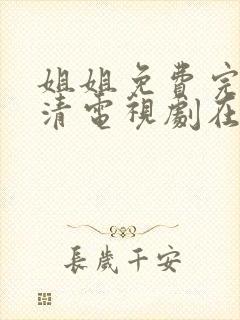 姐姐免費完
清電視劇在
長歲千安